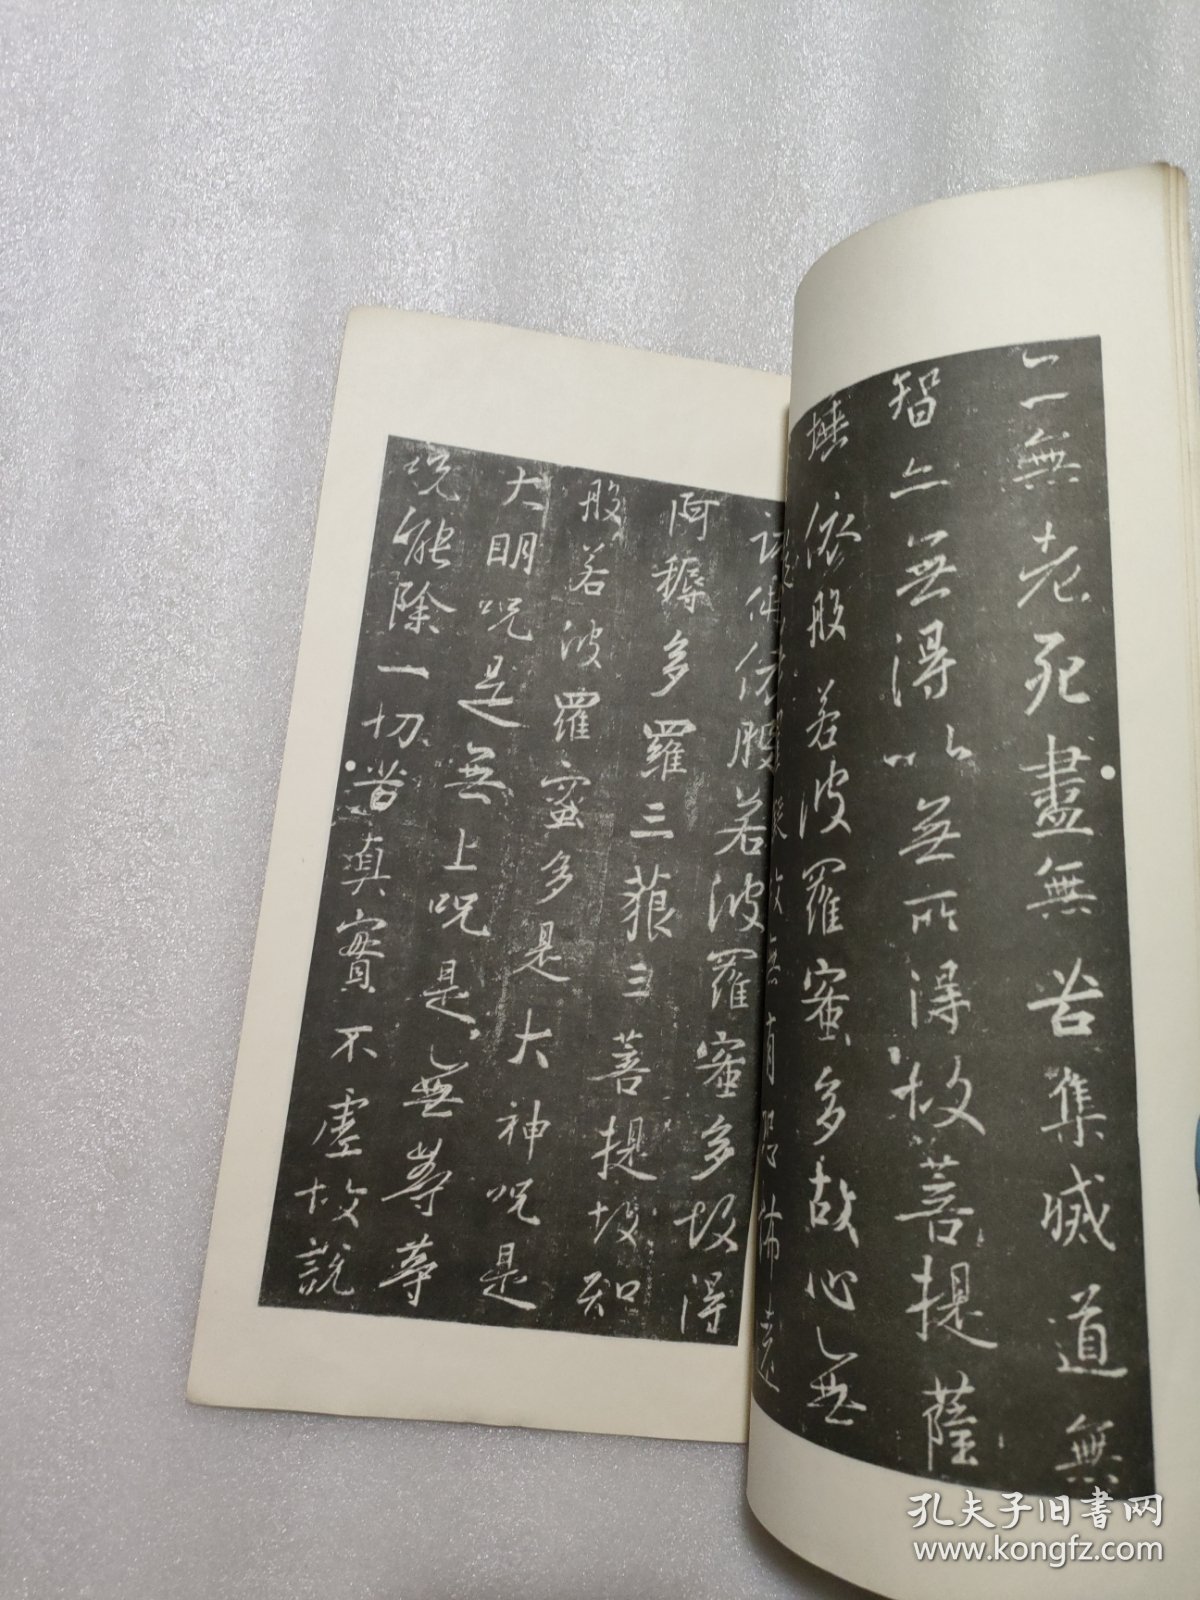 亦無老死盡無苦集滅道無
智亦無得以無所得故菩提薩
埵依般若波羅蜜多故心無
礙故無有恐怖遠
諸佛依般若波羅蜜多故得
阿耨多羅三藐三菩提故知
般若波羅蜜多是大神呪是
大明呪是無上呪是無等等
呪能除一切苦真實不虛故說
孔夫子旧书网
www.kongfz.com